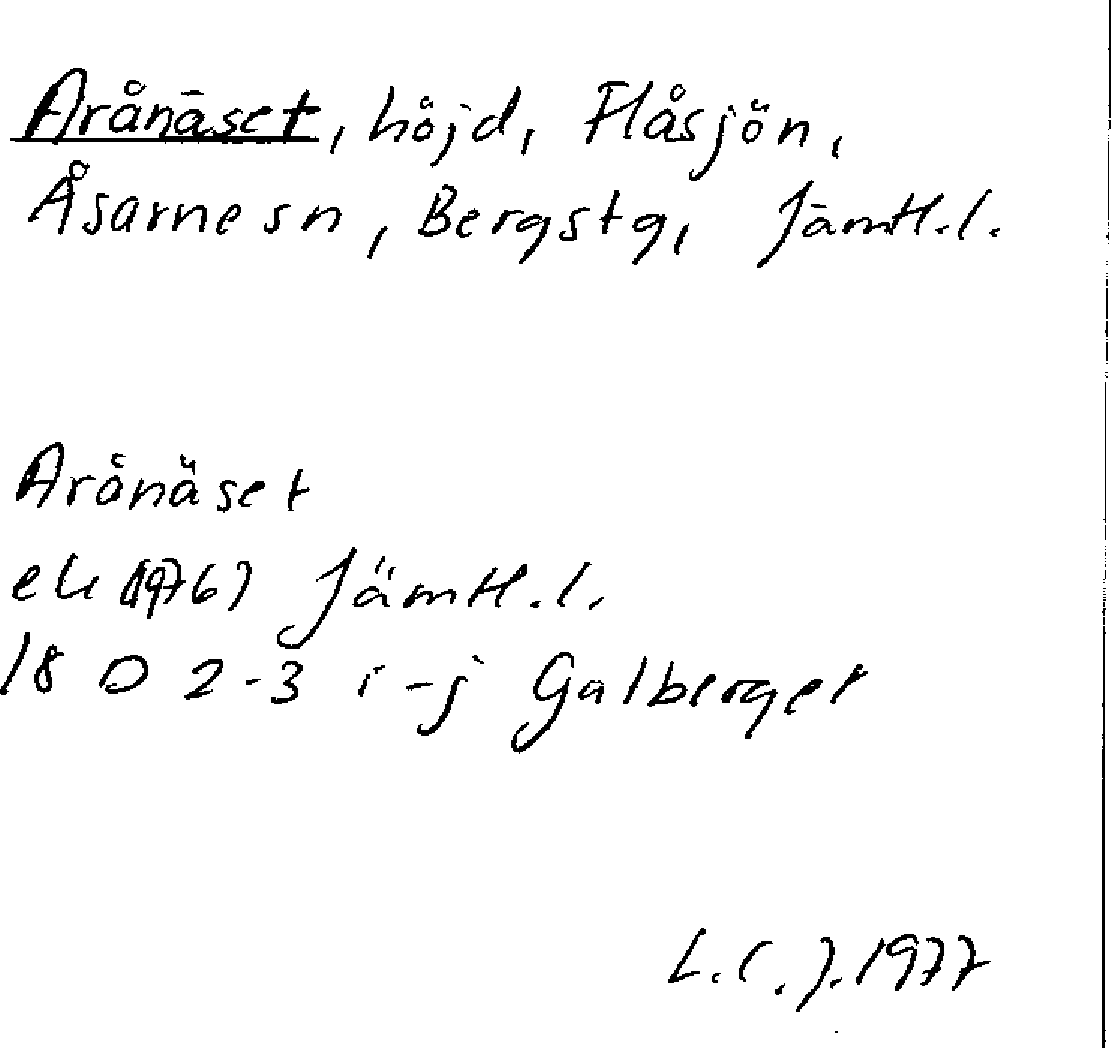 Arånäset, höjd, Flåsjön,
Åsarne sn, Bergs tg, Jämtl.l.
Arånäset
ek (1976) Jämtl.l.
18 D 2-3 i-j Galberget
L.C.J. 1977